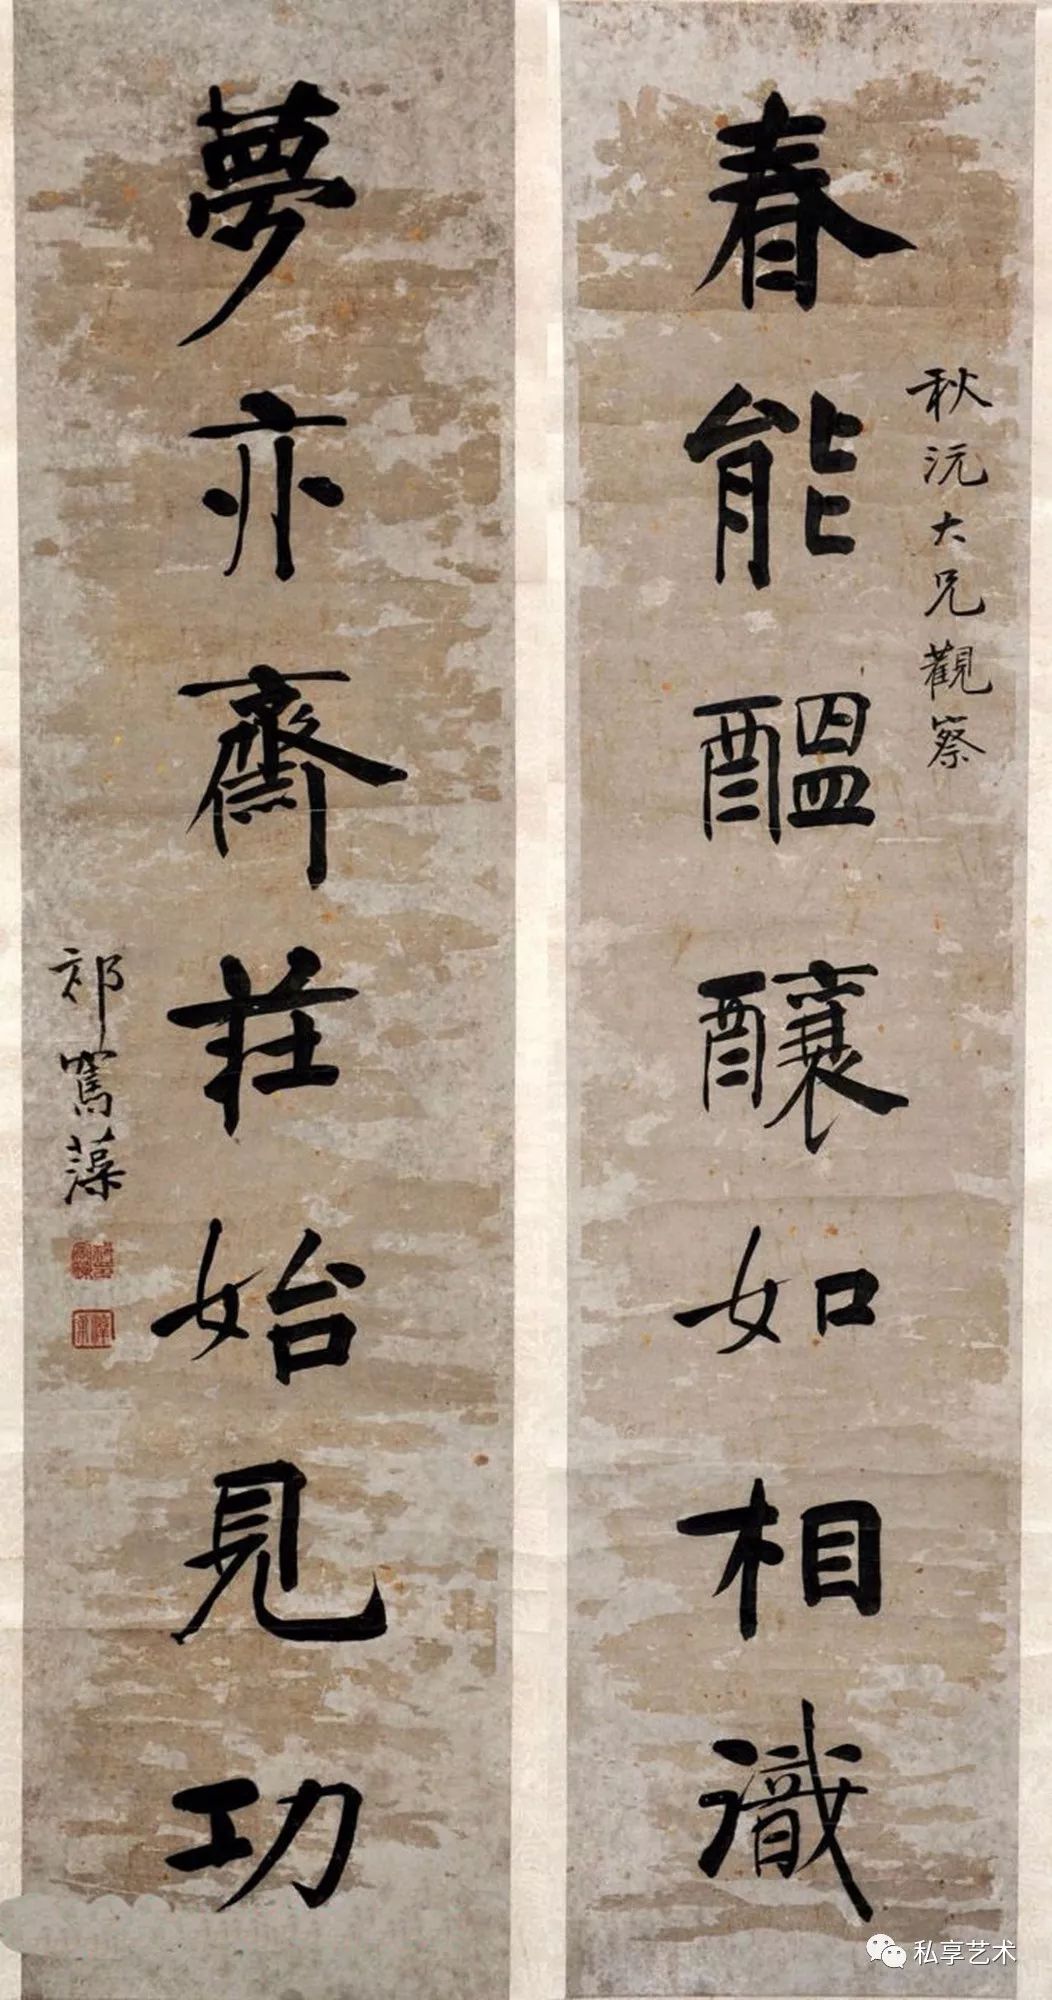 春能醖釀如相識
秋沅大兄觀察
夢亦齋莊始見功
祁寯藻
私享艺术